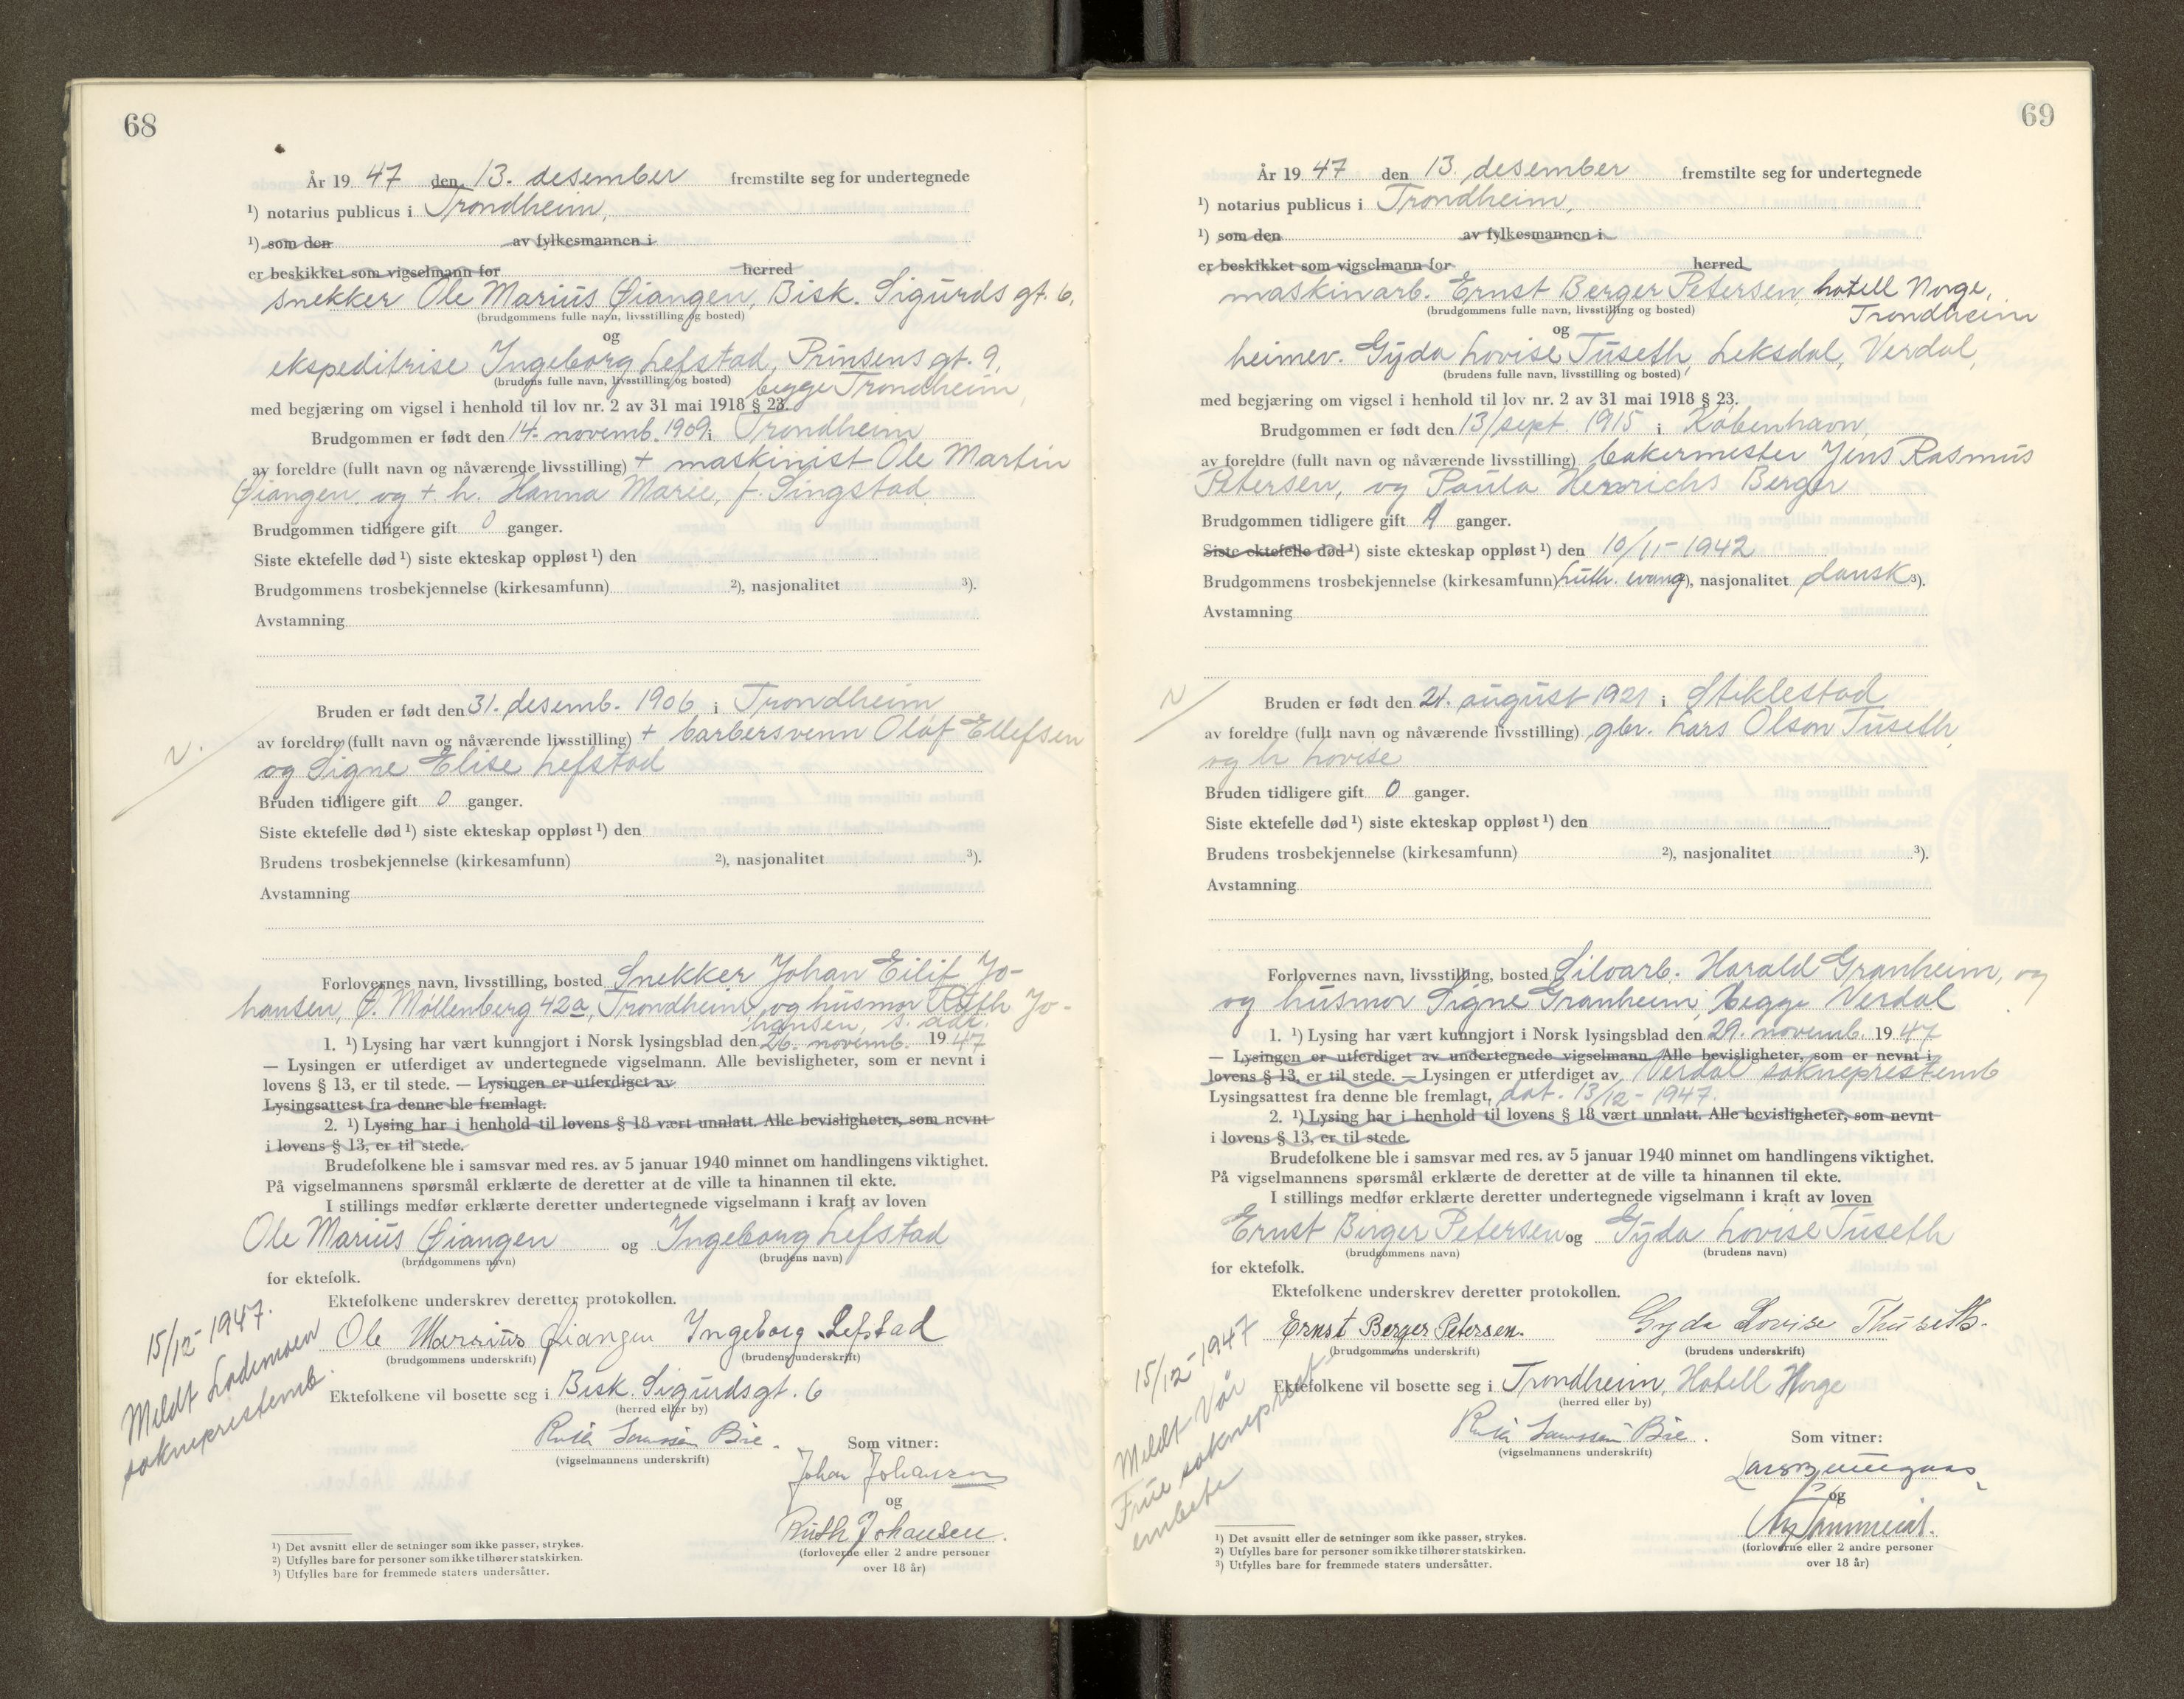 68
År 19 47 den 13. desember fremstilte seg for undertegnede
¹) notarius publicus i Trondheim,
¹) som den av fylkesmannen i
er beskikket som vigselmann for herred
snekker Ole Marius Øiangen, Bisk. Sigurds gt. 6,
(brudgommens fulle navn, livsstilling og bosted)
og
ekspeditrise Ingeborg Lefstad, Prinsens gt. 9,
(brudens fulle navn, livsstilling og bosted) begge Trondheim,
med begjæring om vigsel i henhold til lov nr. 2 av 31 mai 1918 § 23.
Brudgommen er født den 14. novemb. 1909 i Trondheim
av foreldre (fullt navn og nåværende livsstilling) + maskinist Ole Martin
Øiangen og + h. Hanna Marie, f. Singstad
Brudgommen tidligere gift 0 ganger.
Siste ektefelle død ¹) siste ekteskap oppløst ¹) den
Brudgommens trosbekjennelse (kirkesamfunn) ²), nasjonalitet ³).
Avstamning
Bruden er født den 31. desemb. 1906 i Trondheim
av foreldre (fullt navn og nåværende livsstilling) + barbersvenn Olaf Ellefsen
N.
og Signe Elise Lefstad
Bruden tidligere gift 0 ganger.
Siste ektefelle død ¹) siste ekteskap oppløst ¹) den
Brudens trosbekjennelse (kirkesamfunn) ²), nasjonalitet ³).
Avstamning
Forlovernes navn, livsstilling, bosted Snekker Johan Eilif Jo-
hansen, Ø. Møllenberg 42a, Trondheim, og husmor Ruth Jo-
hansen, s. adr.
1. ¹) Lysing har vært kunngjort i Norsk lysingsblad den 26. novemb. 19 47
— Lysingen er utferdiget av undertegnede vigselmann. Alle bevisligheter, som er nevnt i
lovens § 13, er til stede. — Lysingen er utferdiget av
Lysingsattest fra denne ble fremlagt.
2. ¹) Lysing har i henhold til lovens § 18 vært unnlatt. Alle bevisligheter, som nevnt
i lovens § 13, er til stede.
Brudefolkene ble i samsvar med res. av 5 januar 1940 minnet om handlingens viktighet.
På vigselmannens spørsmål erklærte de deretter at de ville ta hinannen til ekte.
I stillings medfør erklærte deretter undertegnede vigselmann i kraft av loven
Ole Marius Øiangen og Ingeborg Lefstad
(brudgommens navn) (brudens navn)
for ektefolk.
Ektefolkene underskrev deretter protokollen.
Ole Marius Øiangen Ingeborg Lefstad
(brudgommens underskrift) (brudens underskrift)
15/12-1947.
Meldt Lademoen
sokneprestemb.
Ektefolkene vil bosette seg i Bisk. Sigurdsgt. 6
(herred eller by)
(vigselmannens underskrift)
Som vitner:
Johan Johansen
og
Ruth Johansen.
(forloverne eller 2 andre personer
over 18 år)
¹) Det avsnitt eller de setninger som ikke passer, strykes.
²) Utfylles bare for personer som ikke tilhører statskirken.
³) Utfylles bare for fremmede staters undersåtter.
69
År 19 47 den 13. desember fremstilte seg for undertegnede
¹) notarius publicus i Trondheim,
¹) som den av fylkesmannen i
er beskikket som vigselmann for herred
maskinarb. Ernst Berger Petersen, hotell Norge,
Trondheim
(brudgommens fulle navn, livsstilling og bosted)
og
heimev. Gyda Lovise Tuseth, Leksdal, Verdal,
(brudens fulle navn, livsstilling og bosted)
med begjæring om vigsel i henhold til lov nr. 2 av 31 mai 1918 § 23.
Brudgommen er født den 13/sept. 1915 i København,
av foreldre (fullt navn og nåværende livsstilling) bakermester Jens Rasmus
Petersen, og Paula Henrichs Berger
Brudgommen tidligere gift 1 ganger.
Siste ektefelle død ¹) siste ekteskap oppløst ¹) den 10/11-1942
Brudgommens trosbekjennelse (kirkesamfunn) luth. evang ), nasjonalitet dansk ³).
Avstamning
N
Bruden er født den 21. august 1921 i Stiklestad
av foreldre (fullt navn og nåværende livsstilling) gbr. Lars Olson Tuseth,
og h Lovise
Bruden tidligere gift 0 ganger.
Siste ektefelle død ¹) siste ekteskap oppløst ¹) den
Brudens trosbekjennelse (kirkesamfunn) ²), nasjonalitet ³).
Avstamning
Forlovernes navn, livsstilling, bosted Siloarb. Harald Granheim, og
og husmor Signe Granheim, begge Verdal
1. ¹) Lysing har vært kunngjort i Norsk lysingsblad den 29. novemb. 19 47
— Lysingen er utferdiget av undertegnede vigselmann. Alle bevisligheter, som er nevnt i
lovens § 13, er til stede. — Lysingen er utferdiget av Verdal sokneprestemb
Lysingsattest fra denne ble fremlagt, dat. 13/12-1947.
2. ¹) Lysing har i henhold til lovens § 18 vært unnlatt. Alle bevisligheter, som nevnt
i lovens § 13, er til stede.
Brudefolkene ble i samsvar med res. av 5 januar 1940 minnet om handlingens viktighet.
På vigselmannens spørsmål erklærte de deretter at de ville ta hinannen til ekte.
I stillings medfør erklærte deretter undertegnede vigselmann i kraft av loven
Ernst Birger Petersen og Gyda Lovise Tuseth
(brudgommens navn) (brudens navn)
for ektefolk.
Ektefolkene underskrev deretter protokollen.
Ernst Berger Petersen. Gyda Lovise Thuseth.
(brudgommens underskrift) (brudens underskrift)
15/12-1947
Meldt Vår
Frue sokneprest-
embete
Ektefolkene vil bosette seg i Trondheim, Hotell Norge
(herred eller by)
(vigselmannens underskrift)
Som vitner:
og
(forloverne eller 2 andre personer
over 18 år)
¹) Det avsnitt eller de setninger som ikke passer, strykes.
²) Utfylles bare for personer som ikke tilhører statskirken.
³) Utfylles bare for fremmede staters undersåtter.